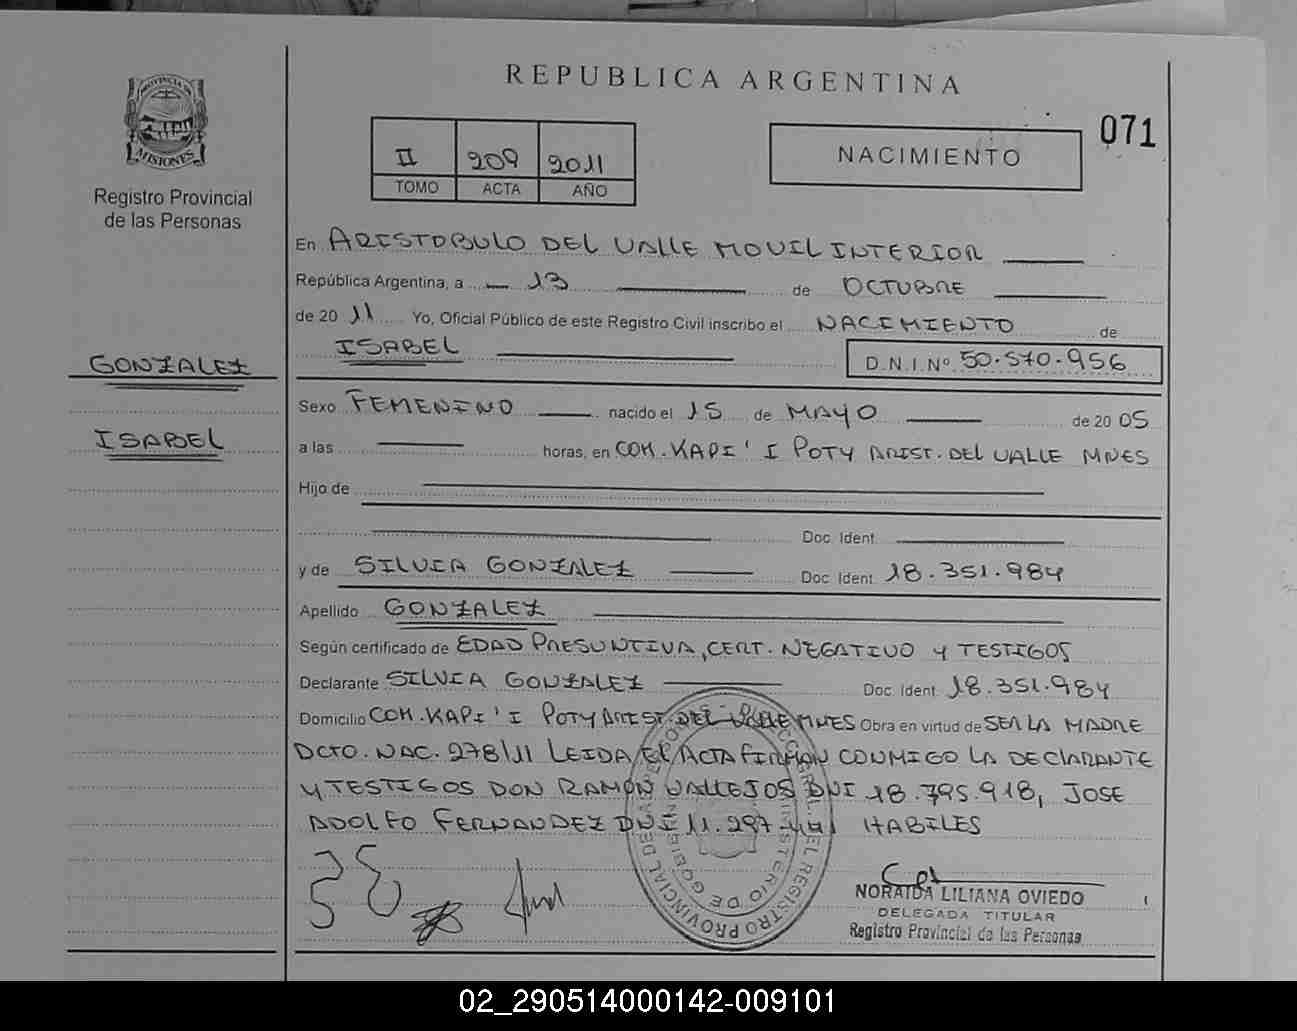 REPUBLICA ARGENTINA
071
II 209 2011
TOMO ACTA AÑO
NACIMIENTO
MISIONES
Registro Provincial
de las Personas
GONZALEZ
ISABEL
En ARISTOBULO DEL VALLE MOVIL INTERIOR
República Argentina, a 13 de OCTUBRE
de 20 11 Yo, Oficial Público de este Registro Civil inscribo el NACIMIENTO de
ISABEL D.N.I. Nº 50.570.956
Sexo FEMENINO nacido el 15 de MAYO de 20 05
a las horas, en COM. KAPI' I POTY ARIST. DEL VALLE MNES
Hijo de
Doc. Ident.
y de SILVIA GONZALEZ Doc. Ident. 18.351.984
Apellido GONZALEZ
Según certificado de EDAD PRESUNTIVA, CERT. NEGATIVO Y TESTIGOS
Declarante SILVIA GONZALEZ Doc. Ident. 18.351.984
Domicilio COM. KAPI' I POTY ARIST. DEL VALLE MNES Obra en virtud de SER LA MADRE
DCTO. NAC. 278/11 LEIDA EL ACTA FIRMAN CONMIGO LA DECLARANTE
Y TESTIGOS DON RAMON VALLEJOS DNI 18.795.918, JOSE
ADOLFO FERNANDEZ DNI 11.297. HABILES
NORAIDA LILIANA OVIEDO
DELEGADA TITULAR
Registro Provincial de las Personas
02_290514000142-009101